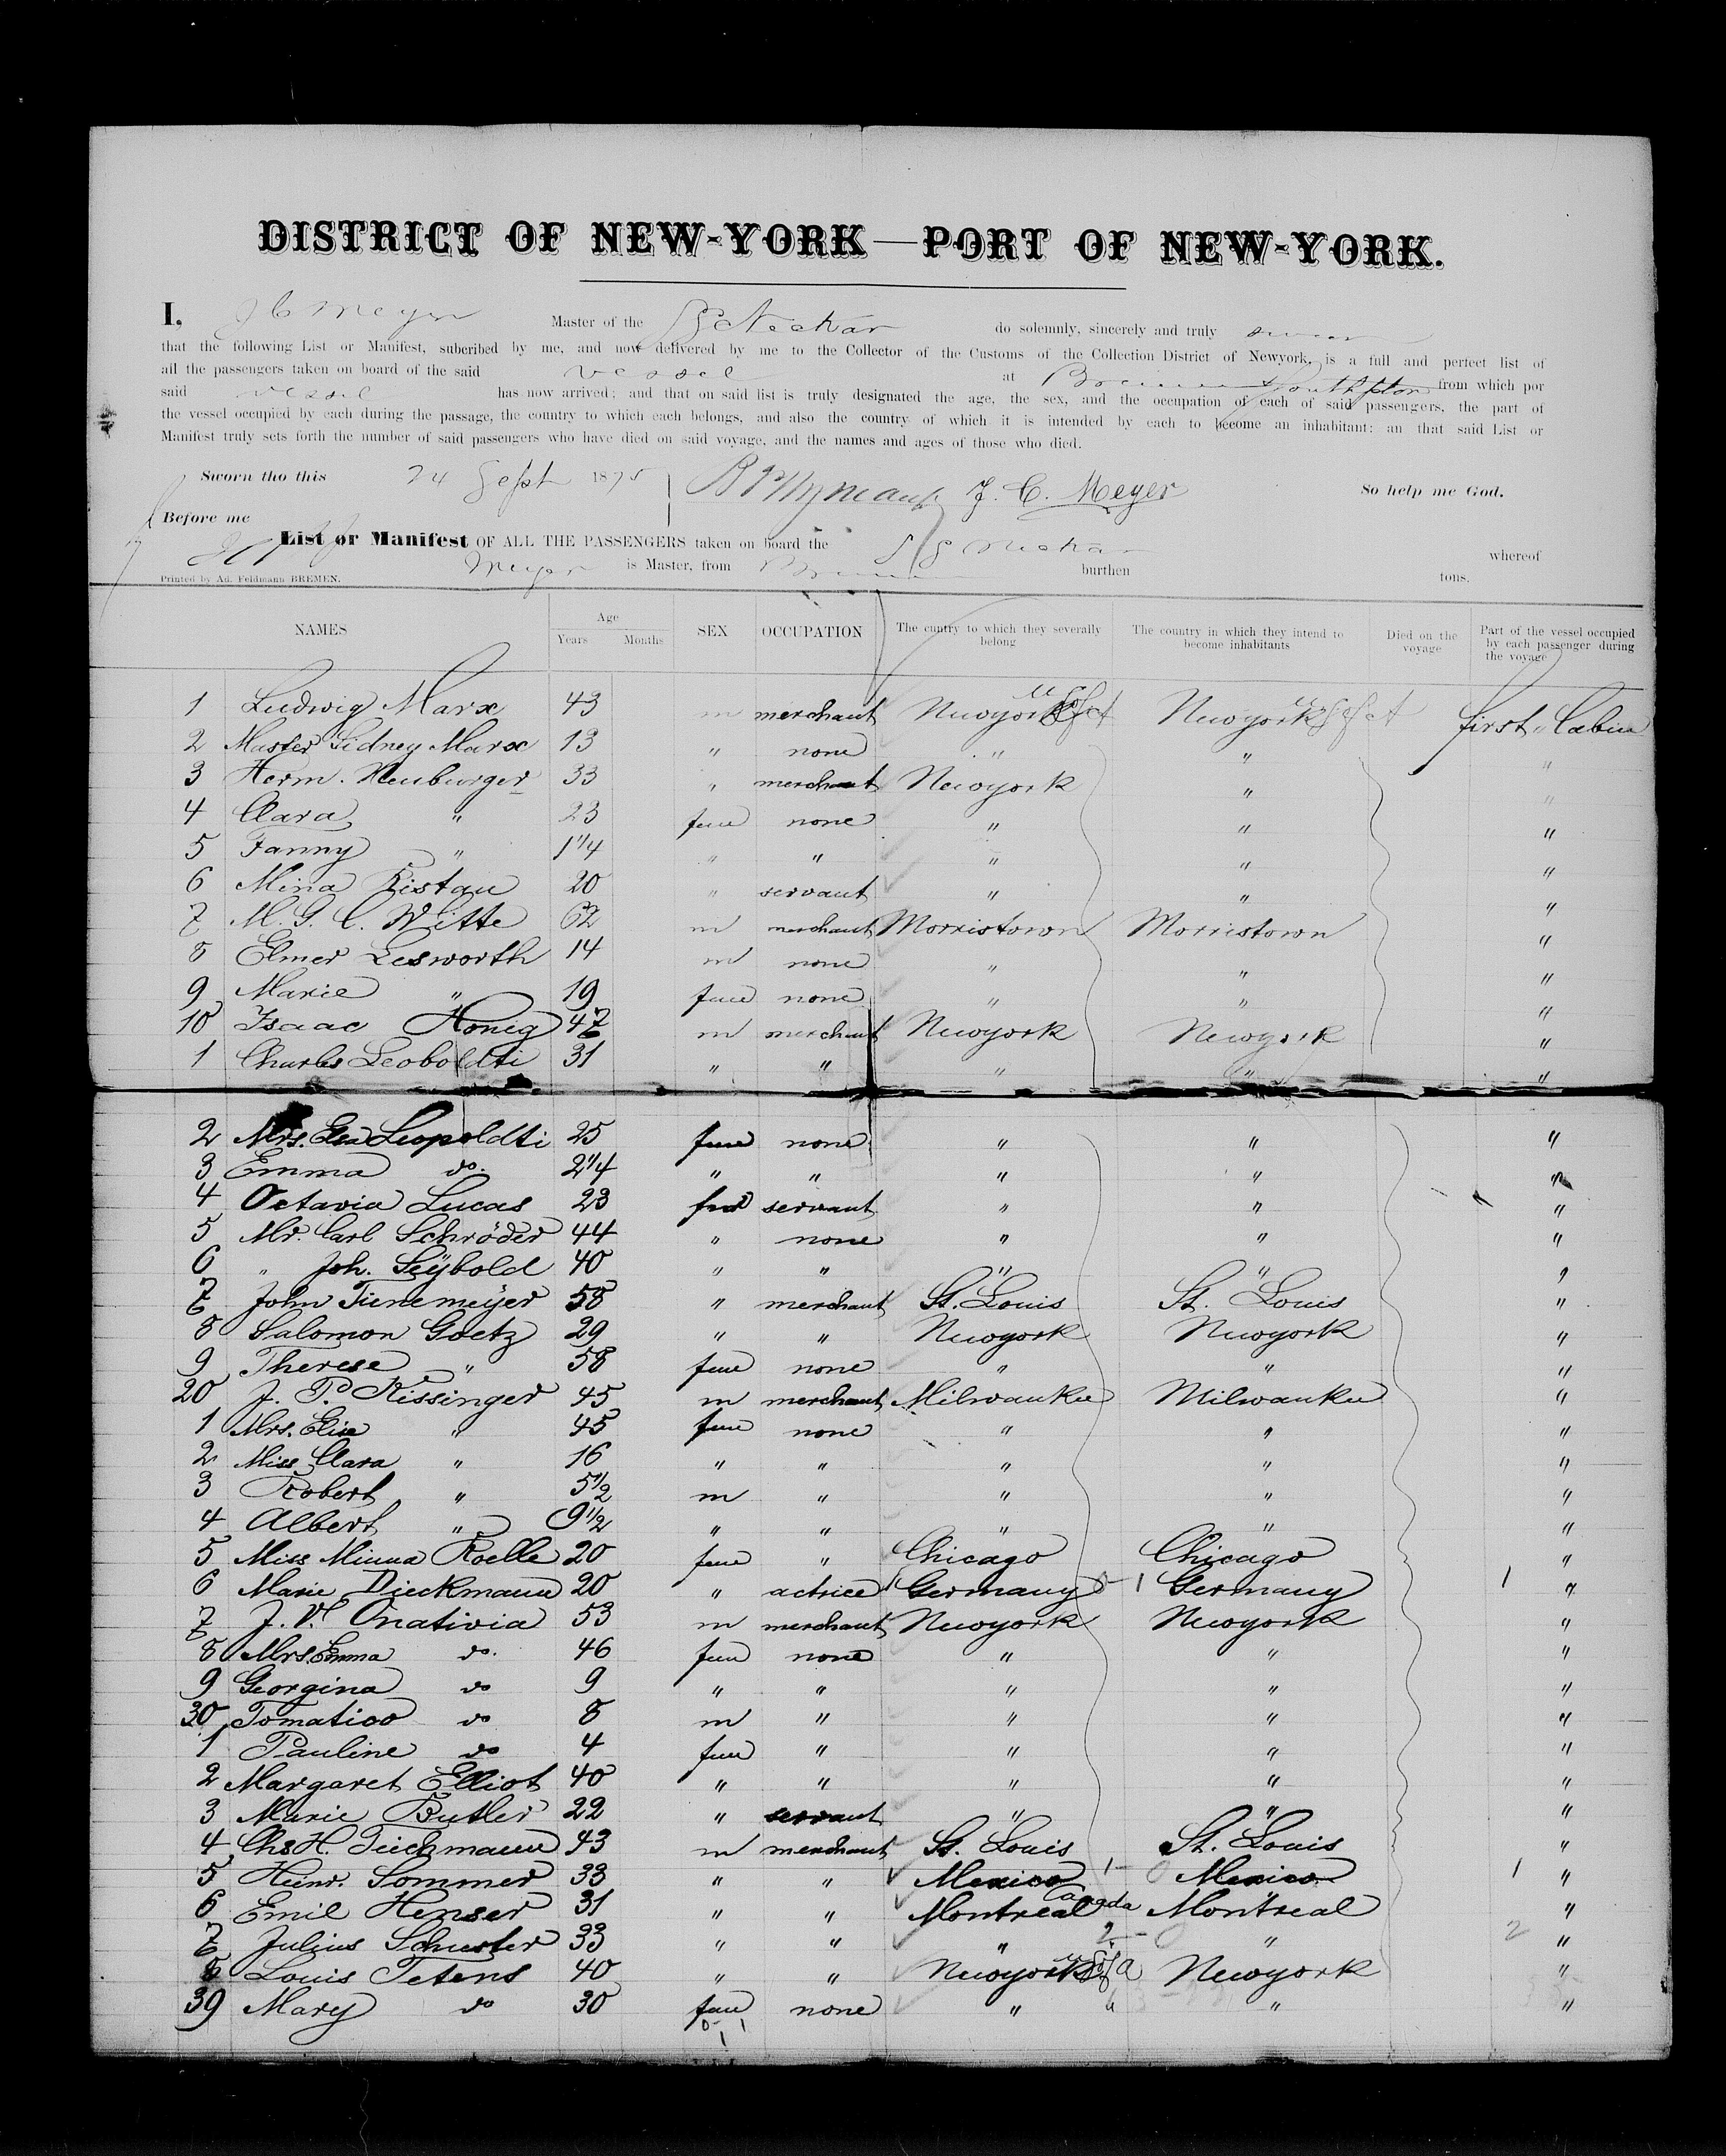 DISTRICT OF NEW-YORK—PORT OF NEW-YORK.
I, J C Meyer Master of the SS Neckar do solemnly, sincerely and truly swear
that the following List or Manifest, subcribed by me, and now delivered by me to the Collector of the Customs of the Collection District of Newyork, is a full and perfect list of
all the passengers taken on board of the said vessel at Bremen & Southpton from which por
said vessel has now arrived; and that on said list is truly designated the age, the sex, and the occupation of each of said passengers, the part of
the vessel occupied by each during the passage, the country to which each belongs, and also the country of which it is intended by each to become an inhabitant: an that said List or
Manifest truly sets forth the number of said passengers who have died on said voyage, and the names and ages of those who died.
Sworn tho this 24 Sept 1875 J. C. Meyer So help me God.
Before me
List or Manifest OF ALL THE PASSENGERS taken on board the SS Neckar whereof
Meyer is Master, from Bremen burthen tons.
Printed by Ad. Feldmann BREMEN.
NAMES Age Years Months SEX OCCUPATION The cuntry to which they severally belong The country in which they intend to become inhabitants Died on the voyage Part of the vessel occupied by each passenger during the voyage
1 Ludwig Marx 43 m merchant Newyork U S of A Newyork U S of A first Cabin
2 Master Sidney Marx 13 " none " " "
3 Herm. Neuburger 33 " merchant Newyork " "
4 Clara " 23 fem none " " "
5 Fanny " 1 1/4 " " " " "
6 Mina Ristau 20 " servant " " "
7 M. G. C. Witte 62 m merchant Morristown Morristown "
8 Elmer Lesworth 14 m none " " "
9 Marie " 19 fem none " " "
10 Isaac Honig 47 m merchant Newyork Newyork "
1 Charles Leoboldti 31 " " " " "
2 Mrs. Leopoldti 25 fem none " " "
3 Emma do. 2 1/4 " " " " "
4 Octavia Lucas 23 servant " " "
5 Mr. Carl Schröder 44 " none " " "
6 " Joh. Seÿbold 40 " " " " "
7 John Tienemeÿer 58 " merchant St. Louis St. Louis "
8 Salomon Goetz 29 " " Newyork Newyork "
9 Therese " 58 fem none " " "
20 J. P. Kissinger 45 m merchant Milwaukee Milwaukee "
1 Mrs. Elise " 45 fem none " " "
2 Miss Clara " 16 " " " " "
3 Robert " 5 1/2 m " " " "
4 Albert " 9 1/2 " " " " "
5 Miss Minna Roelle 20 fem " Chicago Chicago "
6 Marie Dieckmann 20 " actrice Germany 0 1 Germany 1 "
7 J. V. Onativia 53 m merchant Newyork Newyork "
8 Mrs. Emma do. 46 fem none " " "
9 Georgina do 9 " " " " "
30 Tomatioo do 8 m " " " "
1 Pauline do 4 fem " " " "
2 Margaret Elliot 40 " " " " "
3 Marie Butler 22 " servant " " "
4 Chs H. Tiechmann 43 m merchant St. Louis St. Louis "
5 Heinr. Sommer 33 " " Mexico 1 — 0 Mexico 1 "
6 Emil Henser 31 " " Montreal Canada Montreal "
7 Julius Schuster 33 " " " 2 — 0 " 2 "
8 Louis Tetens 40 " " Newyork U S of A Newyork "
39 Mary do 30 fem none " " " "